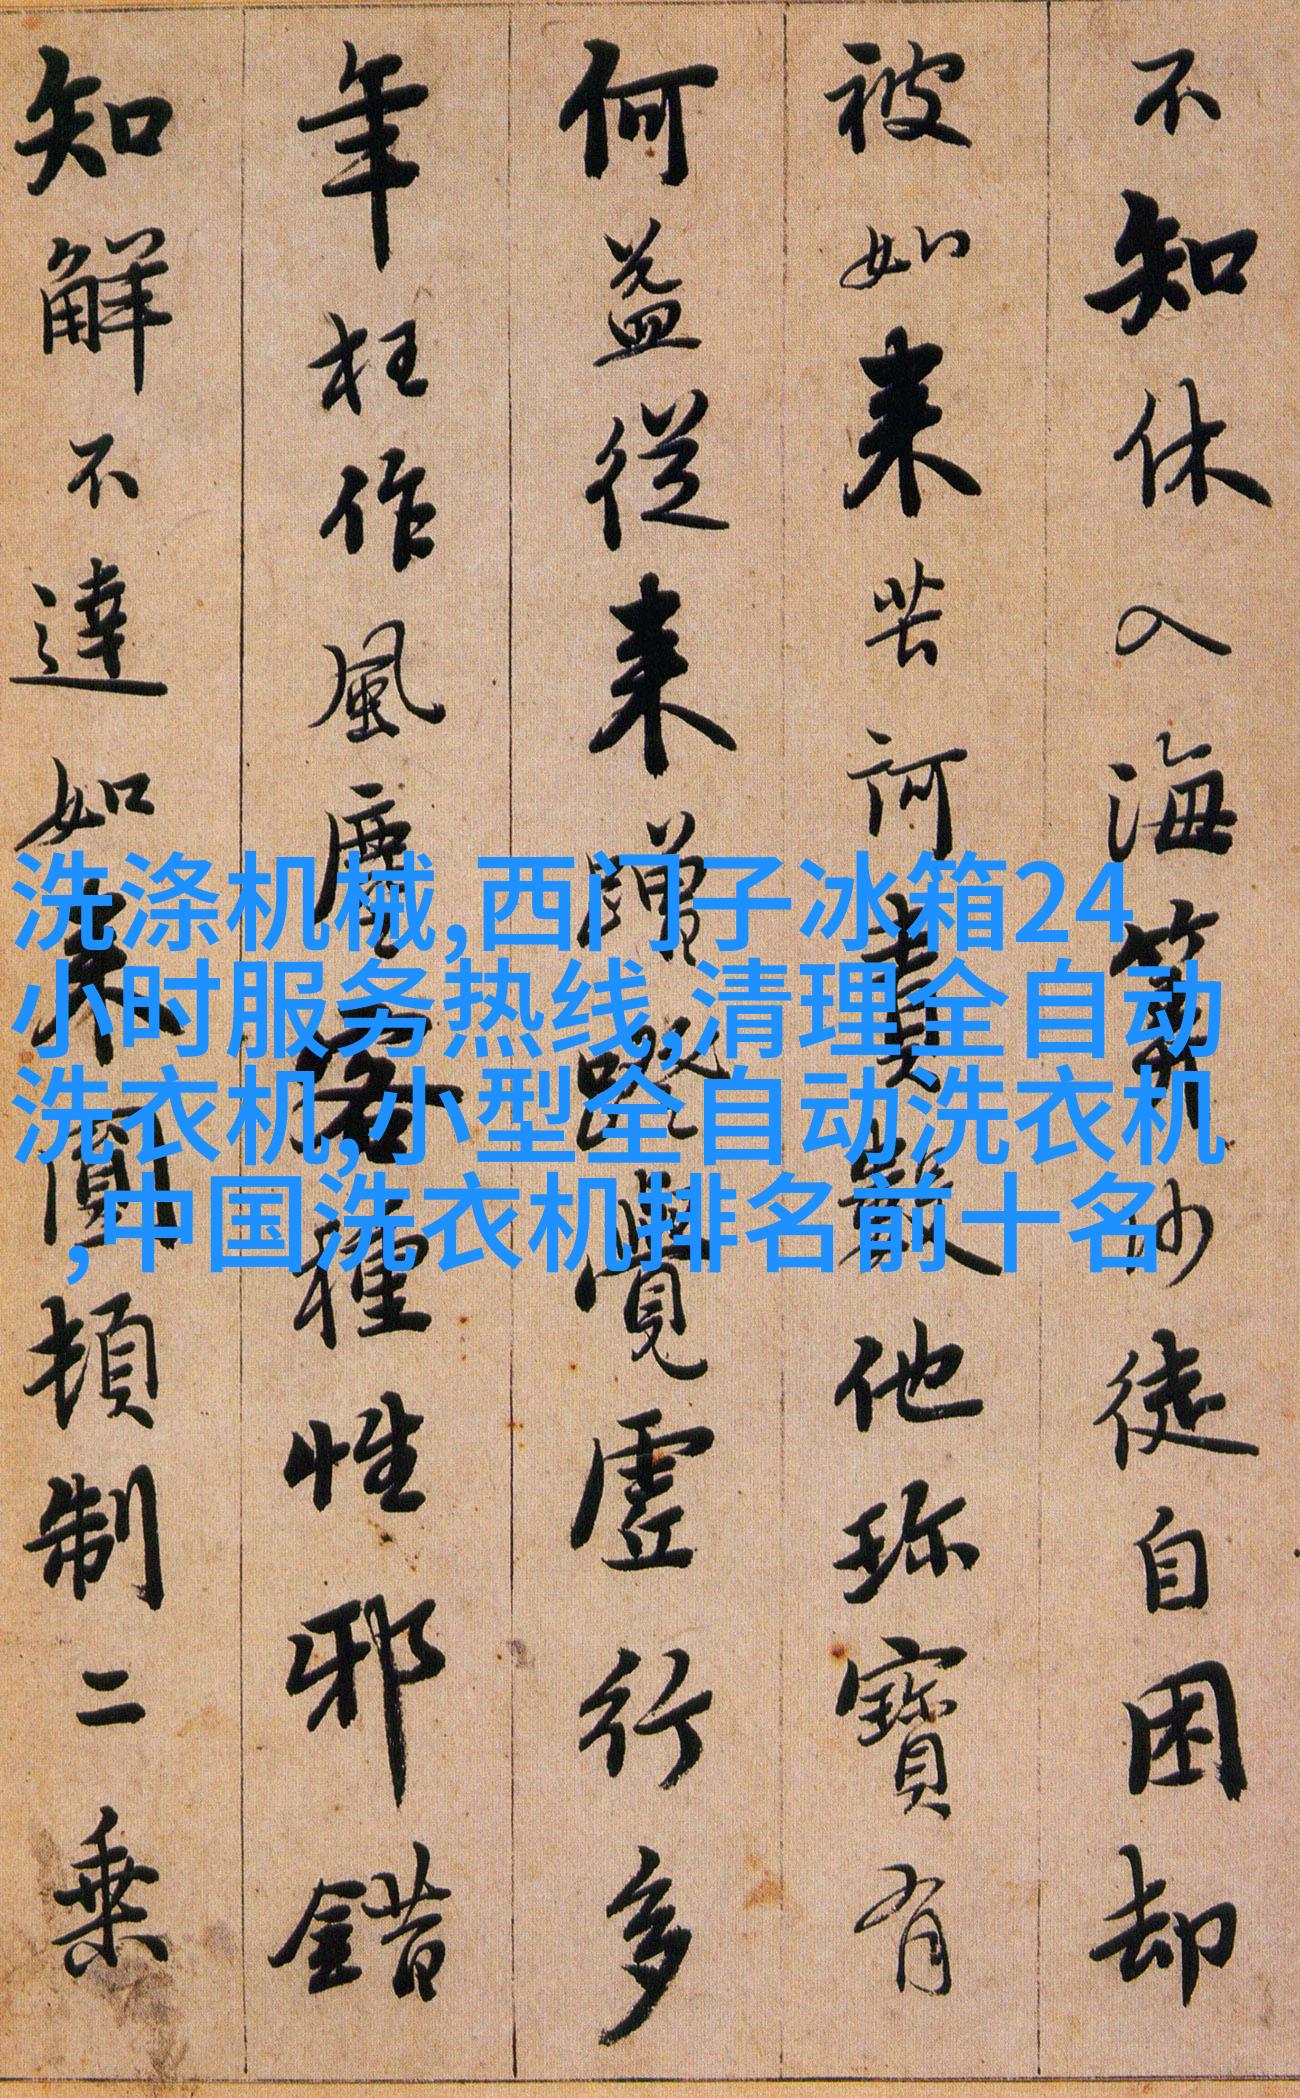 不知休入海筭沙徒自困却
被如来苦訶責數他珎寶有
何益從来蹭蹬覺虛行多
年枉作風塵客種性邪錯
知解不達如来圓頓制二乗
洗涤机械,西门子冰箱24
小时服务热线,清理全自动
洗衣机,小型全自动洗衣机
,中国洗衣机排名前十名